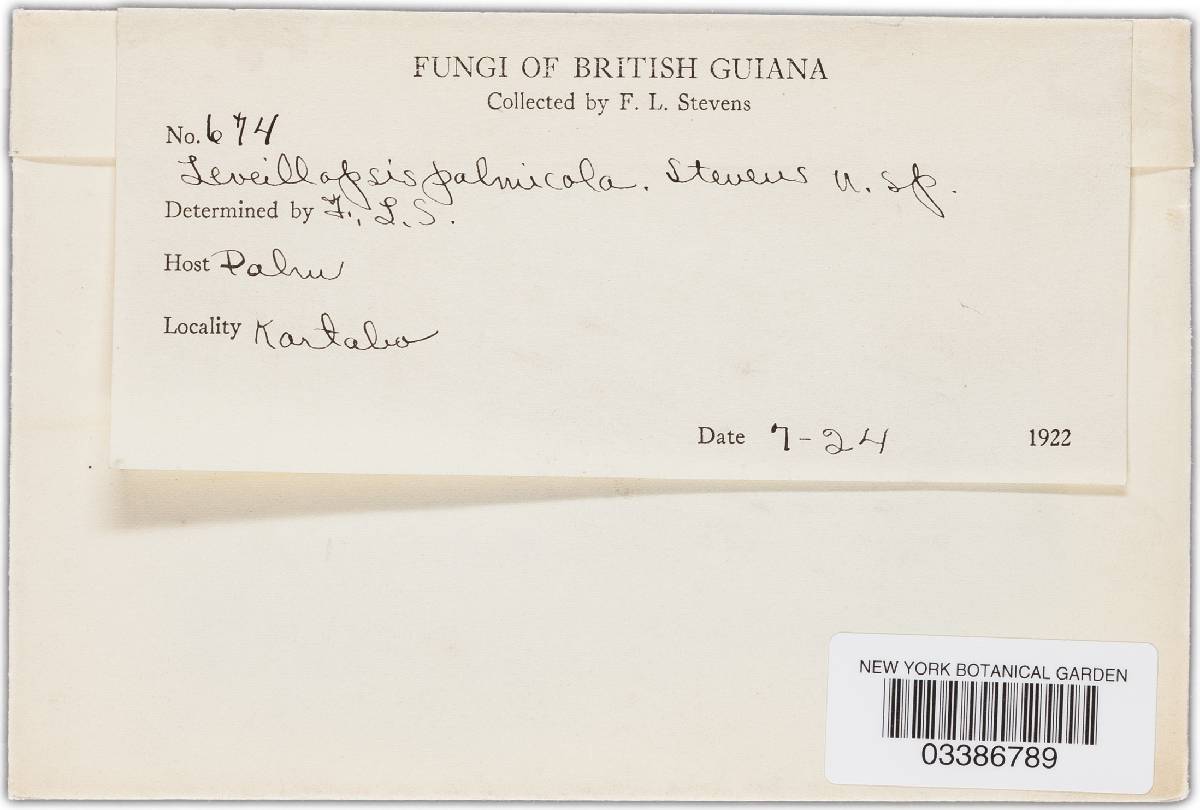 FUNGI OF BRITISH GUIANA
Collected by F. L. Stevens
No. 674
Leveillopsis palmicola. Stevens n. sp.
Determined by F. L. S.
Host Palm
Locality Kartabo
Date 7-24 1922
NEW YORK BOTANICAL GARDEN
03386789